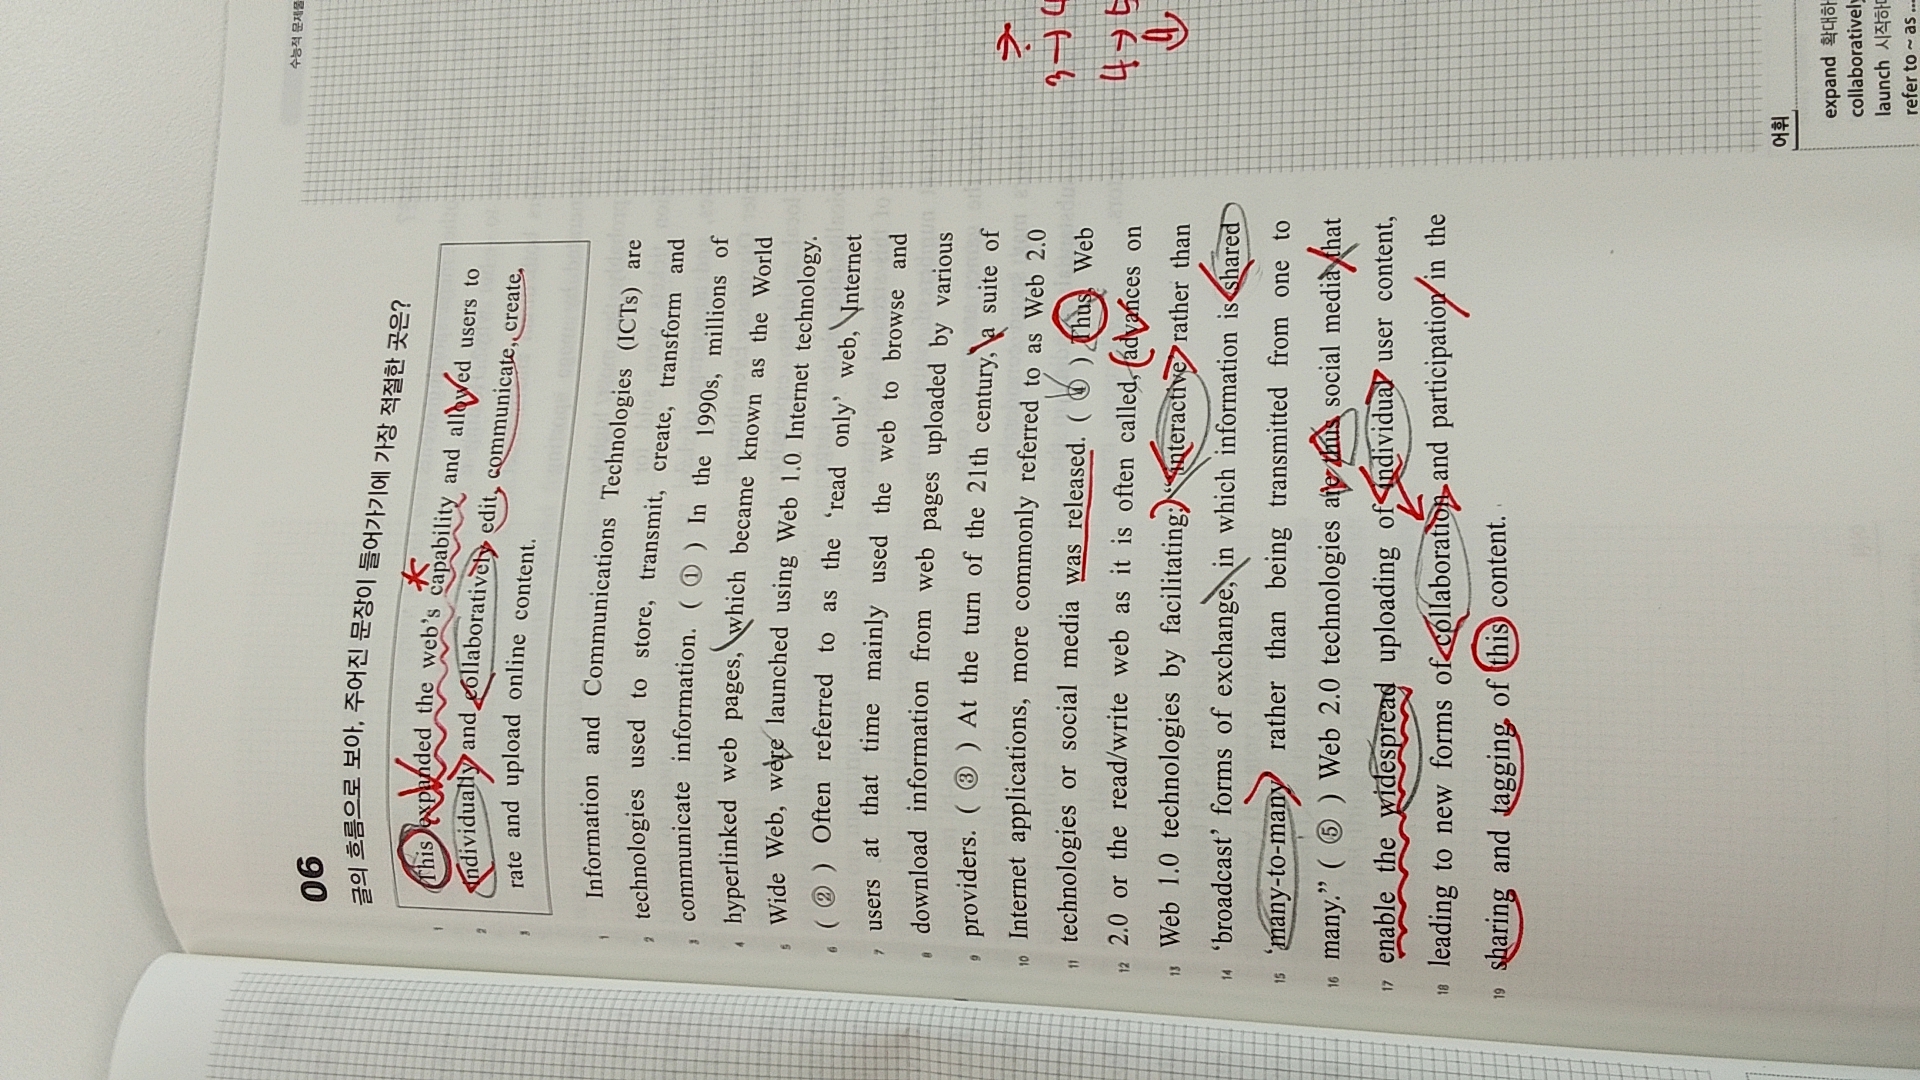 수능적 문제풀
06
글의 흐름으로 보아, 주어진 문장이 들어가기에 가장 적절한 곳은?
1 This expanded the web's capability and allowed users to
2 individually and collaboratively edit, communicate, create,
3 rate and upload online content.
1 Information and Communications Technologies (ICTs) are
2 technologies used to store, transmit, create, transform and
3 communicate information. ( ① ) In the 1990s, millions of
4 hyperlinked web pages, which became known as the World
5 Wide Web, were launched using Web 1.0 Internet technology.
6 ( ② ) Often referred to as the ‘read only’ web, Internet
7 users at that time mainly used the web to browse and
8 download information from web pages uploaded by various
9 providers. ( ③ ) At the turn of the 21th century, a suite of
10 Internet applications, more commonly referred to as Web 2.0
11 technologies or social media was released. ( ④ ) Thus, Web
12 2.0 or the read/write web as it is often called, advances on
13 Web 1.0 technologies by facilitating; “interactive rather than
14 ‘broadcast’ forms of exchange, in which information is shared
15 ‘many-to-many’ rather than being transmitted from one to
16 many.” ( ⑤ ) Web 2.0 technologies are thus social media that
17 enable the widespread uploading of individual user content,
18 leading to new forms of collaboration and participation in the
19 sharing and tagging of this content.
어휘
expand 확대하
collaboratively
launch 시작하다
refer to ~ as ...